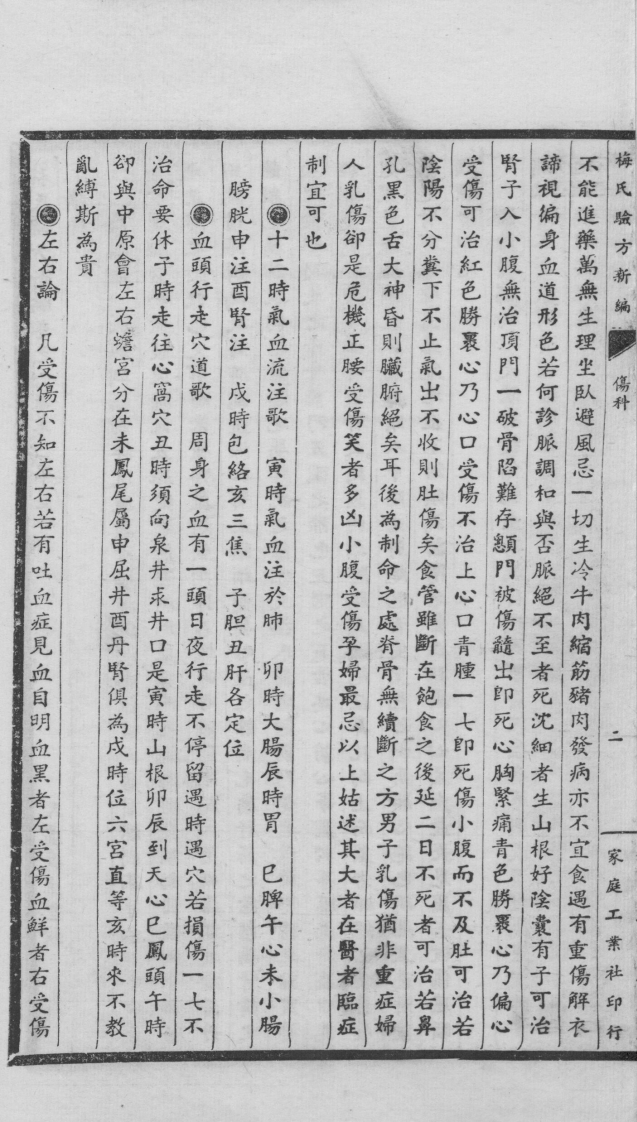 梅氏驗方新編 傷科 二 家庭工業社印行
不能進藥萬無生理坐臥避風忌一切生冷牛肉縮筋豬肉發病亦不宜食遇有重傷解衣
諦視徧身血道形色若何診脈調和與否脈絕不至者死沈細者生山根好陰囊有子可治
腎子入小腹無治頂門一破骨陷難存顖門被傷髓出卽死心胸緊痛青色勝裹心乃偏心
受傷可治紅色勝裹心乃心口受傷不治上心口青腫一七卽死傷小腹而不及肚可治若
陰陽不分糞下不止氣出不收則肚傷矣食管雖斷在飽食之後延二日不死者可治若鼻
孔黑色舌大神昏則臟腑絕矣耳後為制命之處脊骨無續斷之方男子乳傷猶非重症婦
人乳傷卻是危機正腰受傷笑者多凶小腹受傷孕婦最忌以上姑述其大者在醫者臨症
制宜可也
十二時氣血流注歌 寅時氣血注於肺 卯時大腸辰時胃 巳脾午心未小腸
膀胱申注酉腎注 戌時包絡亥三焦 子胆丑肝各定位
血頭行走穴道歌 周身之血有一頭日夜行走不停留遇時遇穴若損傷一七不
治命要休子時走往心窩穴丑時須向泉井求井口是寅時山根卯辰到天心巳鳳頭午時
卻與中原會左右蟾宮分在未鳳尾屬申屈井酉丹腎俱為戌時位六宮直等亥時來不教
亂縛斯為貴
左右論 凡受傷不知左右若有吐血症見血自明血黑者左受傷血鮮者右受傷